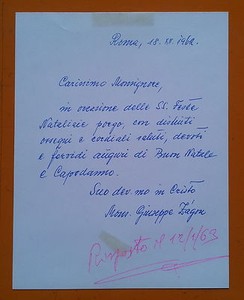 Roma, 18. XII. 1962.
Carissimo Monsignore,
in occasione delle SS. Feste
Natalizie porgo, con distinti
ossequi e cordiali saluti, devoti
e fervidi auguri di Buon Natale
e Capodanno.
Suo dev.mo in Cristo
Mons. Giuseppe Zágon
Risposto il 12/1/63